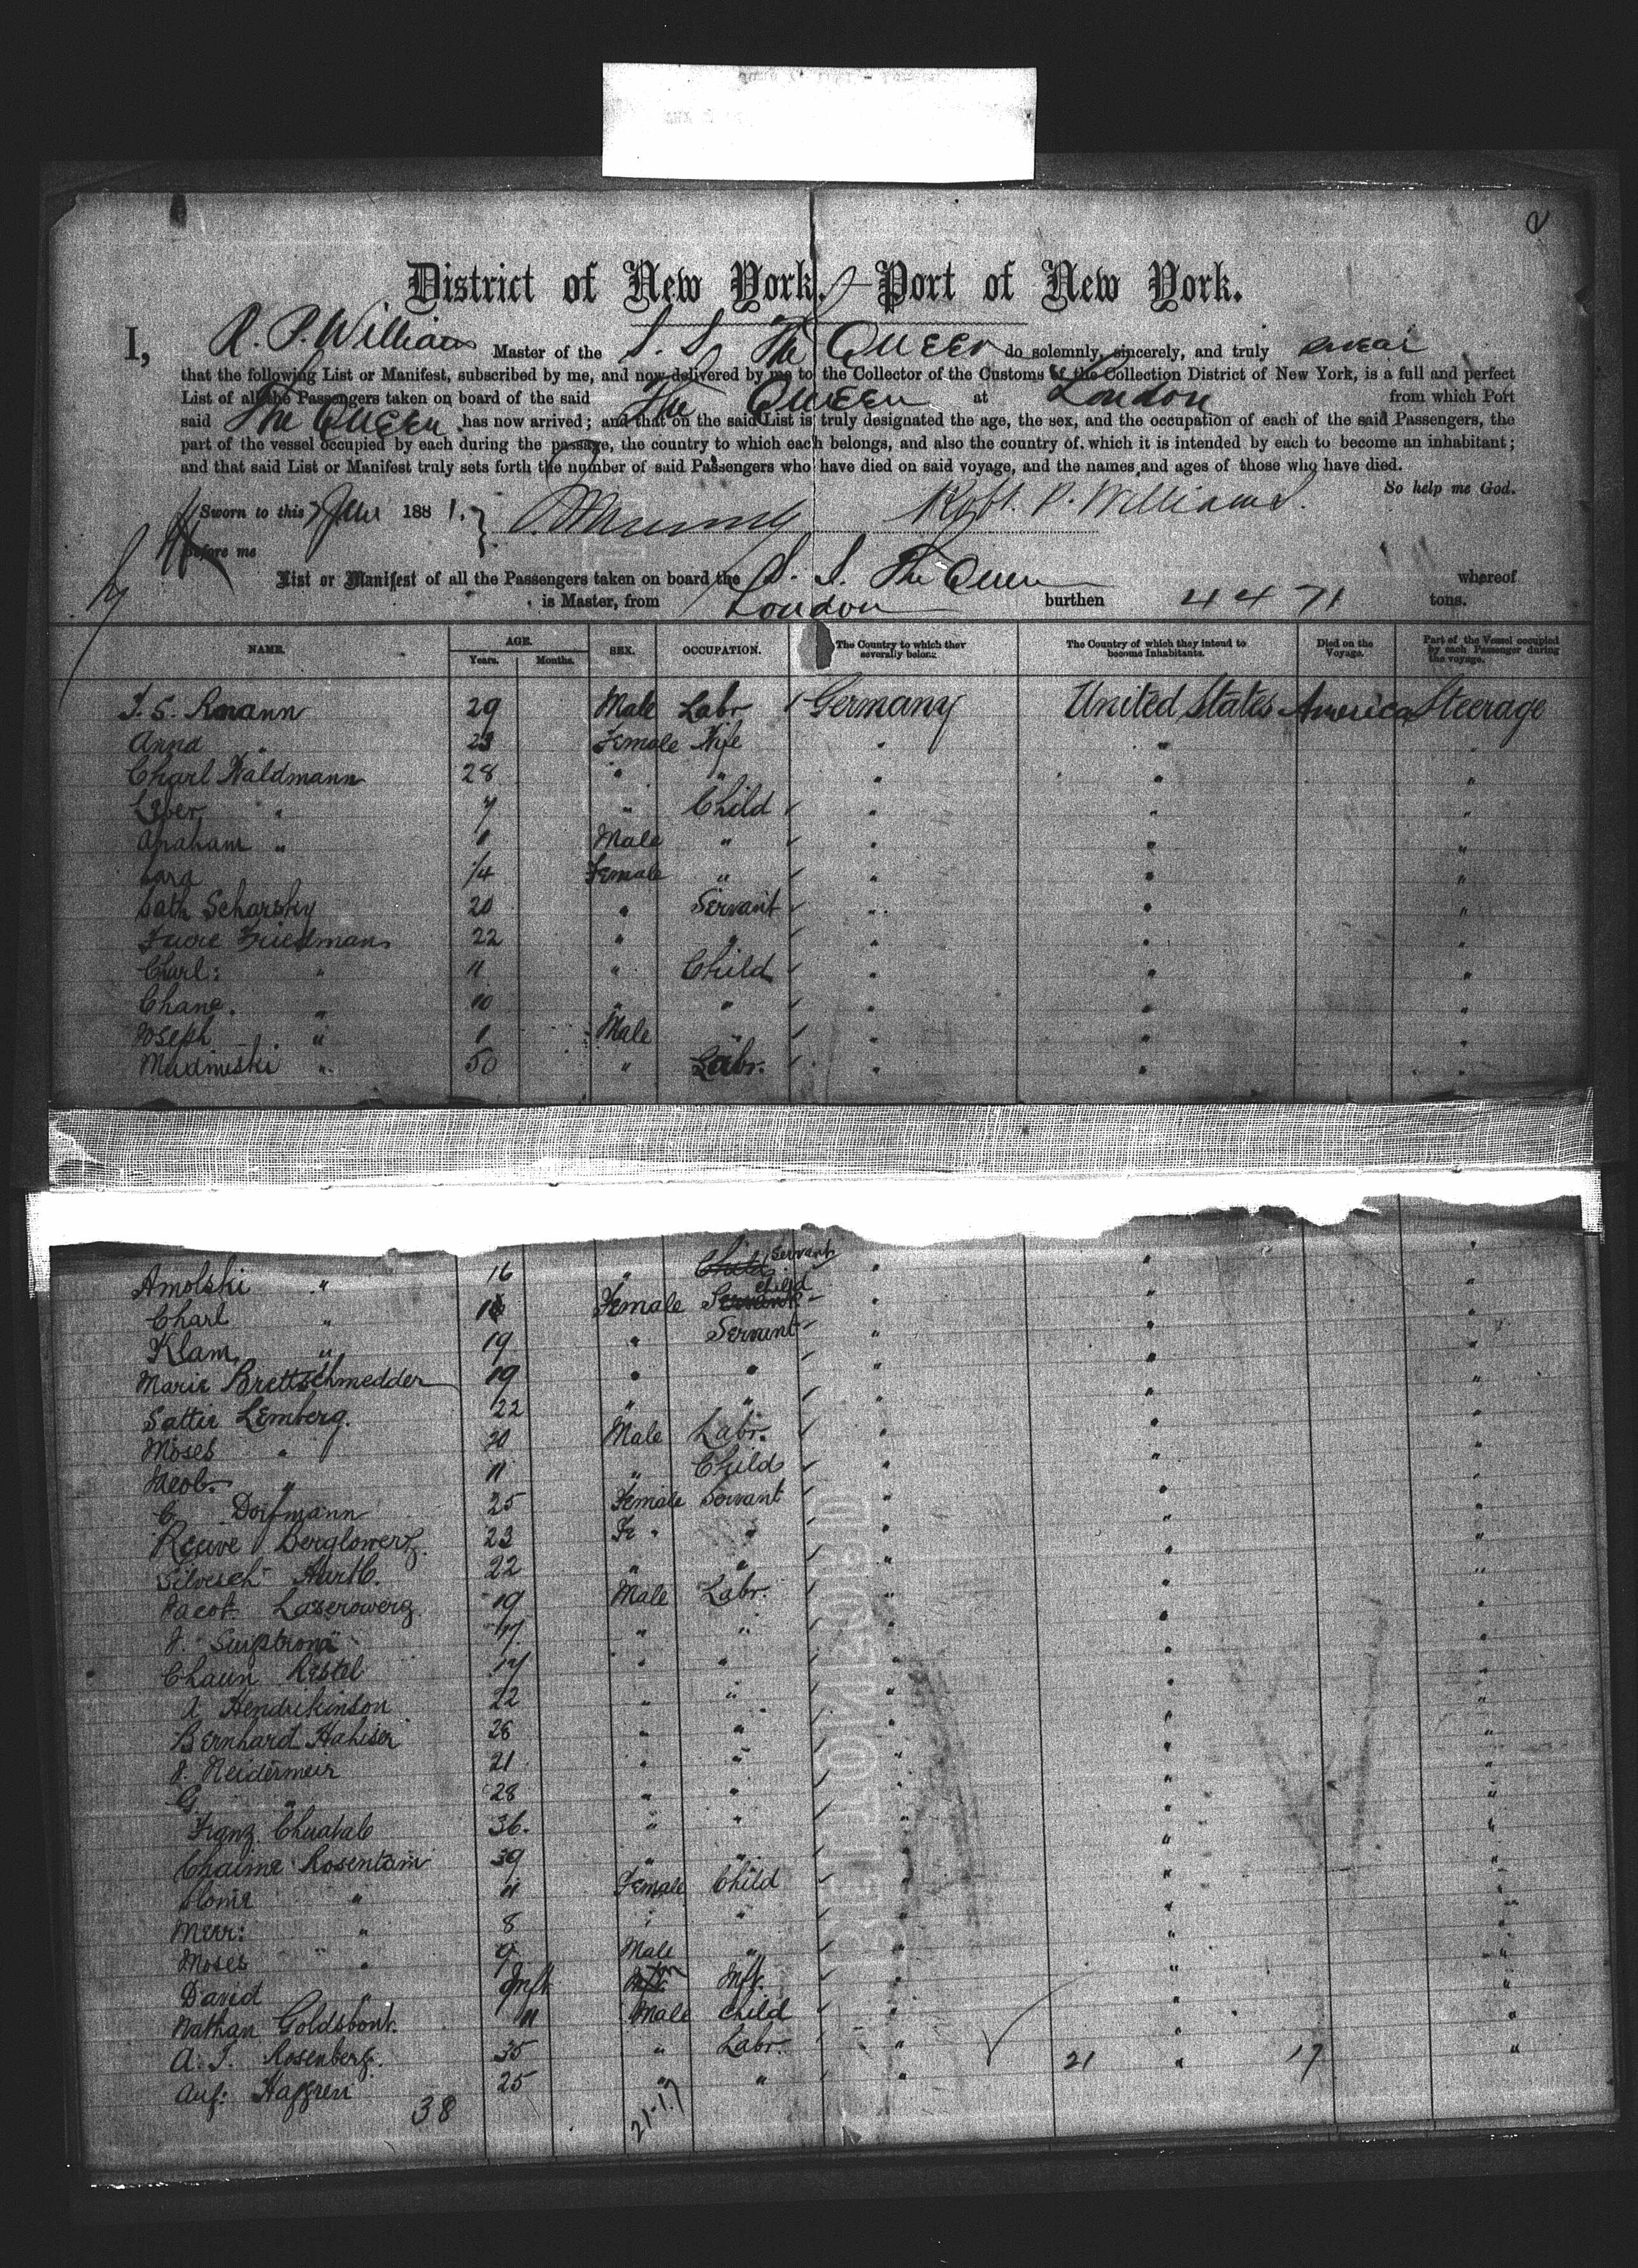 2
District of New York, Port of New York.
I, R. P. Williams Master of the S. S. The Queen do solemnly, sincerely, and truly swear
that the following List or Manifest, subscribed by me, and now delivered by me to the Collector of the Customs of the Collection District of New York, is a full and perfect
List of all the Passengers taken on board of the said The Queen at London from which Port
said The Queen has now arrived; and that on the said List is truly designated the age, the sex, and the occupation of each of the said Passengers, the
part of the vessel occupied by each during the passage, the country to which each belongs, and also the country of which it is intended by each to become an inhabitant;
and that said List or Manifest truly sets forth the number of said Passengers who have died on said voyage, and the names and ages of those who have died.
So help me God.
Sworn to this 7 June 1881. Robt. P. Williams.
Before me
List or Manifest of all the Passengers taken on board the S. S. The Queen whereof
is Master, from London burthen 4471 tons.
NAME. AGE. Years. Months. SEX. OCCUPATION. The Country to which they severally belong. The Country of which they intend to become Inhabitants. Died on the Voyage. Part of the Vessel occupied by each Passenger during the voyage.
29 Male Labr Germany United States America Steerage
Anna " 23 Female Wife " " "
Charl Waldmann 28 " " " " "
" 7 " Child " " "
Abraham " 1 Male " " " "
Sara 1/4 Female " " " "
Scharsky 20 " Servant " " "
Friedman 22 " " " " "
Charl: " 11 " Child " " "
Chane. " 10 " " " " "
Joseph " 1 Male " " " "
" 50 " Labr. " " "
Amolski " 16 " Child Servant " " "
Charl " Female Servant Child " " "
Klam " 19 " Servant " " "
Marie Brettschmedder 19 " " " " "
Sattir Lemberg. 22 " " " " "
Moses " 20 Male Labr. " " "
" 11 " Child " " "
C. Dorfmann 25 Female Servant " " "
Reuve 23 Fe " " " " "
Silvesch 22 " " " " "
Jacob Laserowerg 19 Male Labr. " " "
J. 17 " " " " "
Chaun Restel 17 " " " " "
A Hendrikinson 22 " " " " "
Bernhard 28 " " " " "
J. Neidermeir 21 " " " " "
G. " 28 " " " " "
Franz 36. " " " " "
Chaime Rosentain 39 " " " " "
" 11 Female Child " " "
Merr: " 8 " " " " "
Moses " 9 Male " " " "
David " Inft. Inft. " " "
Nathan Goldsbont. 11 Male Child " " "
A. J. Rosenberg. 35 " Labr. " " "
25 " " " 21 " 17 "
38 21-17